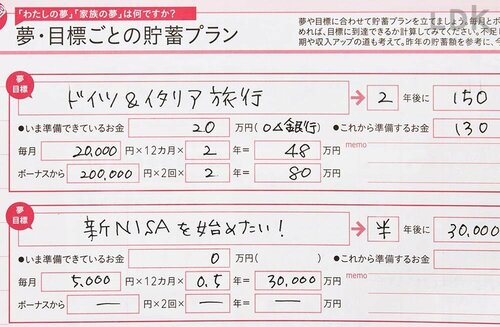 「わたしの夢」「家族の夢」は何ですか?
夢・目標ごとの貯蓄プラン
夢や目標に合わせて貯蓄プランを立てましょう。毎月とボ
めれば、目標に到達できるか計算してみてください。不足し
期や収入アップの道も考えて。昨年の貯蓄額を参考に、今
LDK
夢 目標 ドイツ&イタリア旅行 2 年後に 150
●いま準備できているお金 20 万円(○△銀行) ●これから準備するお金 130
毎月 20,000 円×12カ月× 2 年= 48 万円 memo
ボーナスから 200,000 円×2回× 2 年= 80 万円
夢 目標 新NISAを始めたい! ¥ 年後に 30,000
●いま準備できているお金 0 万円( ) ●これから準備するお金
毎月 5,000 円×12カ月× 0.5 年= 30,000 万円 memo
ボーナスから — 円×2回× — 年= — 万円